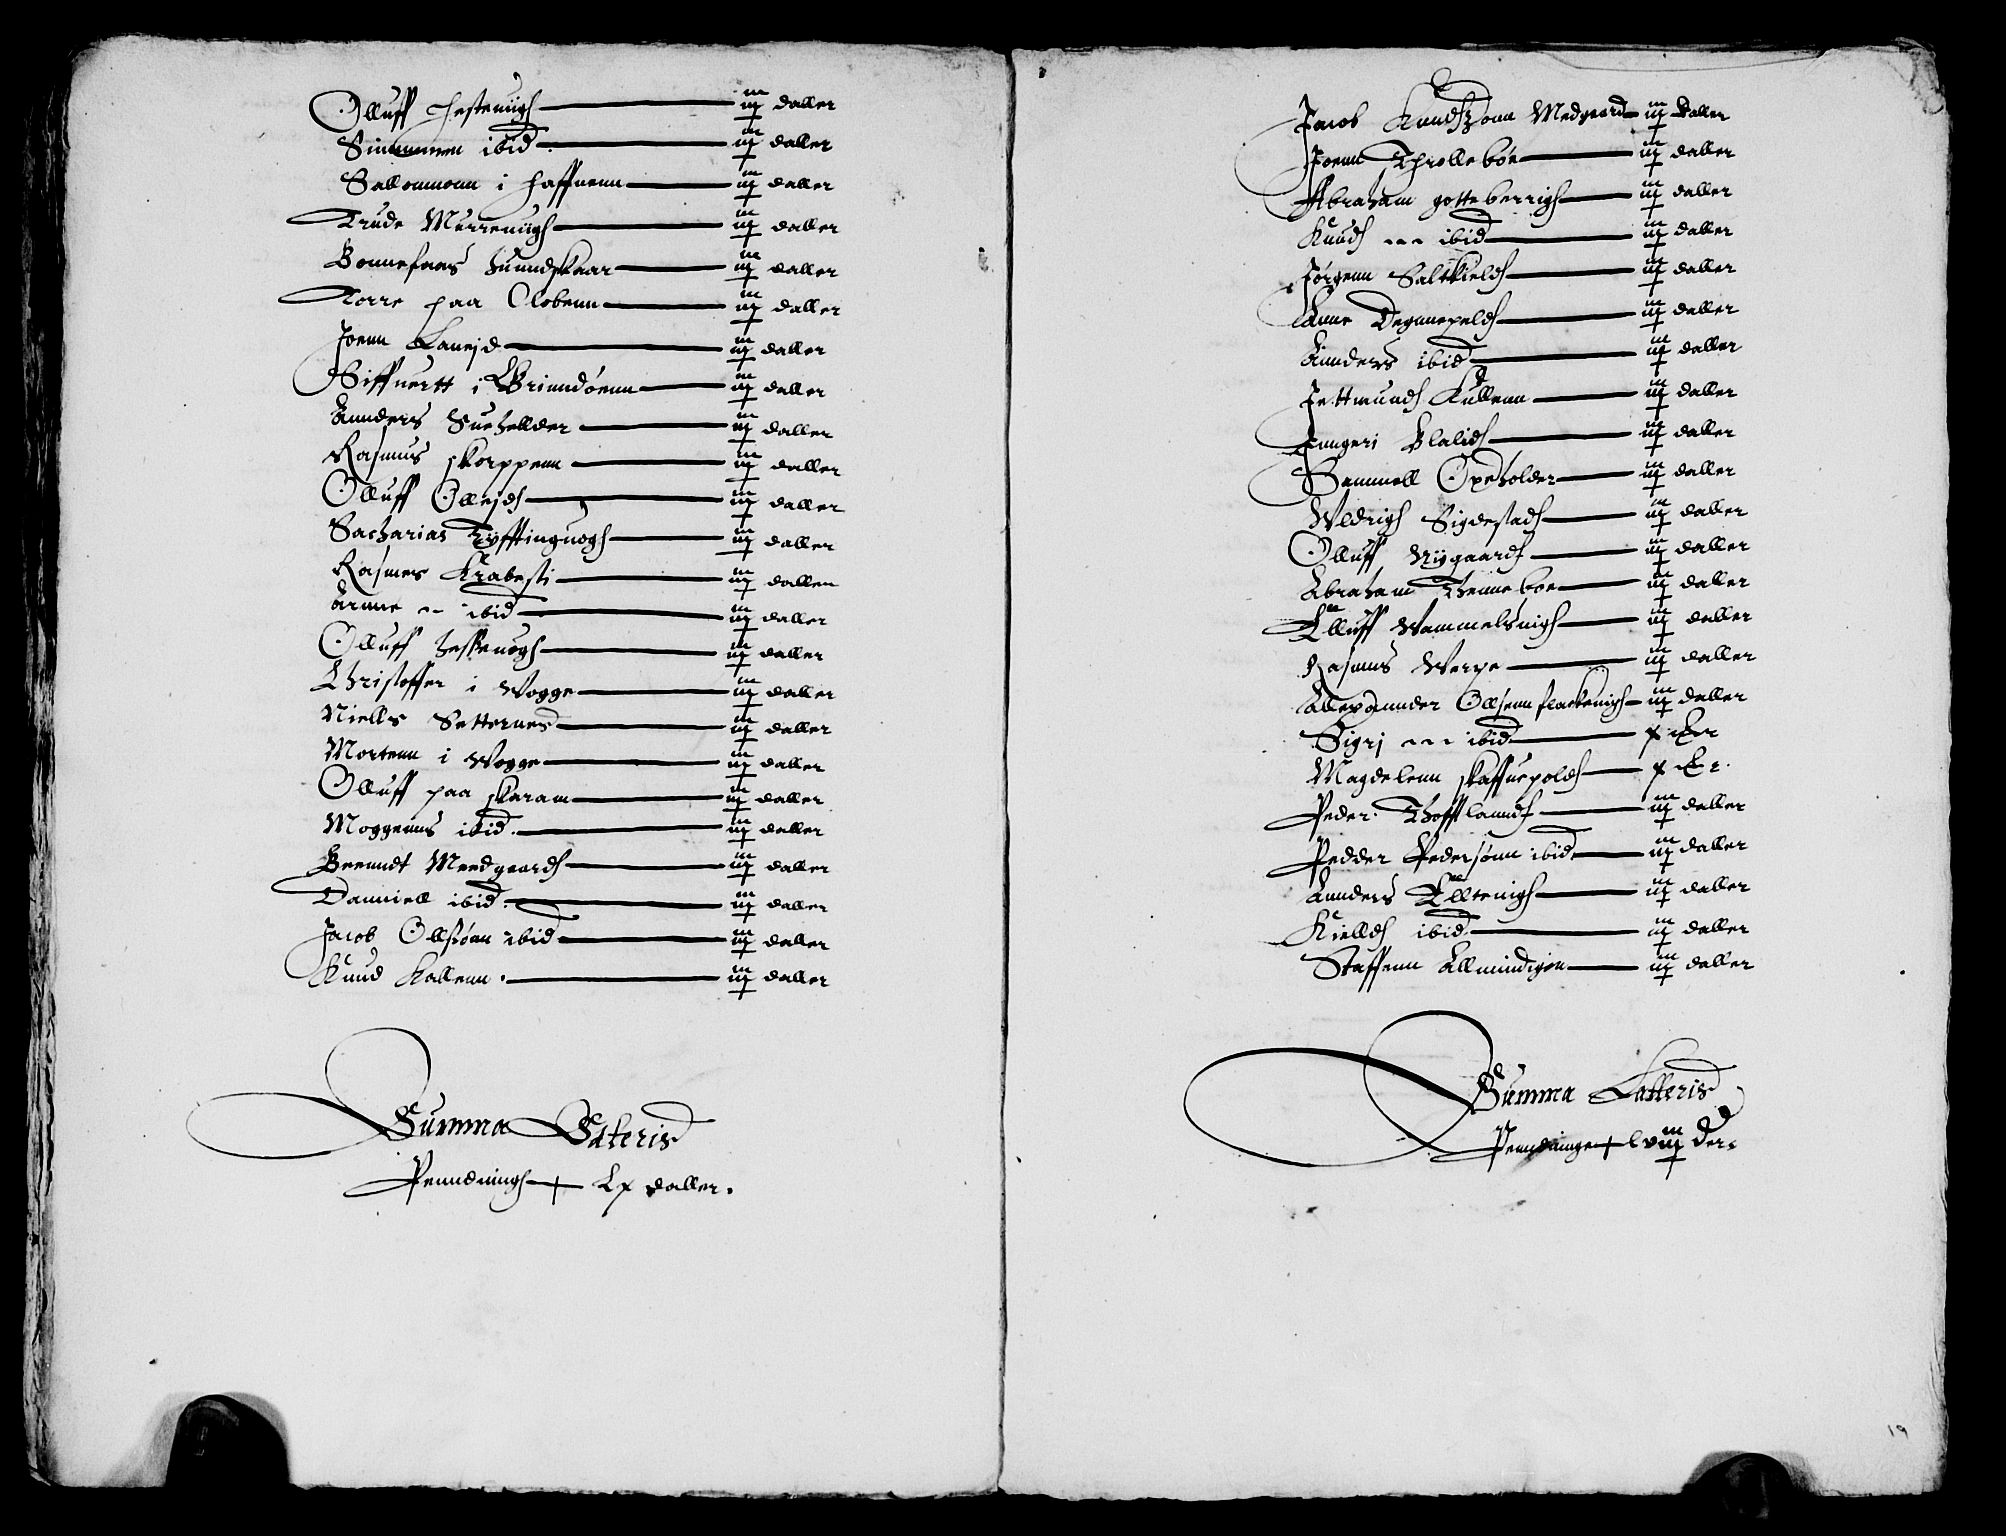 Olluff Hestenigh iij daller
Simmonn ibid iij daller
Sallommonn i Haffnenn iij daller
Trude Murrenigh iij daller
Bonnefaas Hundskaar iij daller
Torre paa Clobenn iij daller
Joenn Laneid iij daller
Siffuertt i Brinndøenn iij daller
Annders Suehellder iij daller
Rasmus skorppenn iij daller
Olluff Olleidh iij daller
Sacharias Tyfftinguogh iij daller
Rasmes Krabesti iij daller
Arnne ibid iij daller
Olluff Hessuogh iij daller
Christoffer i Wogge iij daller
Niells Setternes iij daller
Mortenn i Wogge iij daller
Olluff paa skaram iij daller
Moggenns ibid iij daller
Berenndt Meedgaardh iij daller
Danniell ibid iij daller
Jacob Ollsønn ibid iij daller
Knud Kallenn iij daller
Summa Lateris
Penndningh Lx daller.
Jacob Knudszonn Medgaard iij daller
Joenn Throllebøe iij daller
Abraham gotteberrigh iij daller
Knudh ibid iij daller
Jørgenn Saltkieldh iij daller
Anne Degnnepeldh iij daller
Annders ibid iij daller
Jettmundh Kullenn iij daller
Jnngeri Blalidh iij daller
Sammell Opeholder iij daller
Wldrigh Sigdestadh iij daller
Olluff Nygaardh iij daller
Abraham Thenneboe iij daller
Elluff Wammelsuigh iij daller
Rasmus Werpe iij daller
Allexannder Ollsenn flackeuigh iij daller
Sigri ibid
Magdelenn skaffuepoldh
Peder Thofftlanndh iij daller
Pedder Pedersønn ibid iij daller
Annders Elltenigh iij daller
Kielldh ibid iij daller
Staffenn Allmindigen iij daller
Summa Latteris
Penndninge lviij Der.
19